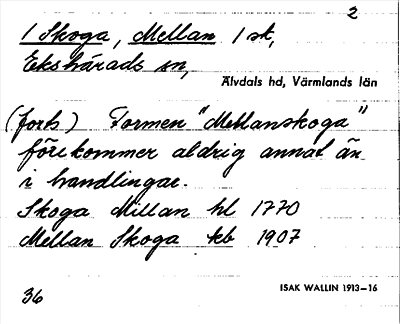 2
1 Skoga, Mellan 1 sk,
Ekshärads sn,
Älvdals hd, Värmlands län
(forts) Formen "Mellanskoga"
förekommer aldrig annat än
i handlingar.
Skoga Millan hl 1770
Mellan Skoga kb 1907
36
ISAK WALLIN 1913–16